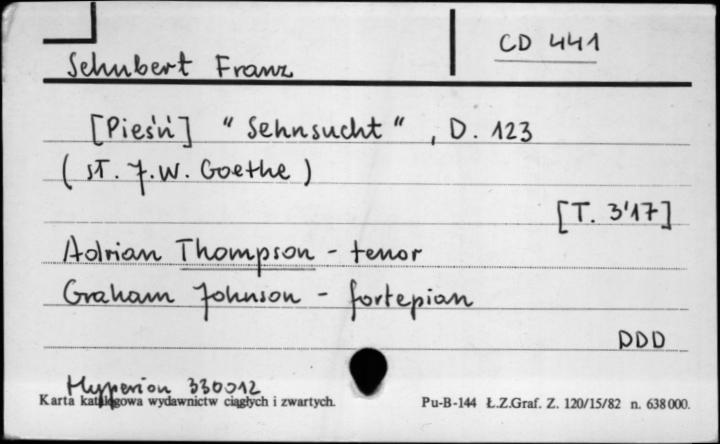 CD 441
Schubert Franz
[Pieśń] "Sehnsucht", D. 123
(sł. J.W. Goethe)
[T. 3'17]
Adrian Thompson - tenor
Graham Johnson - fortepian
DDD
Hyperion 330012
Karta katalogowa wydawnictw ciągłych i zwartych. Pu-B-144 Ł.Z.Graf. Z. 120/15/82 n. 638000.